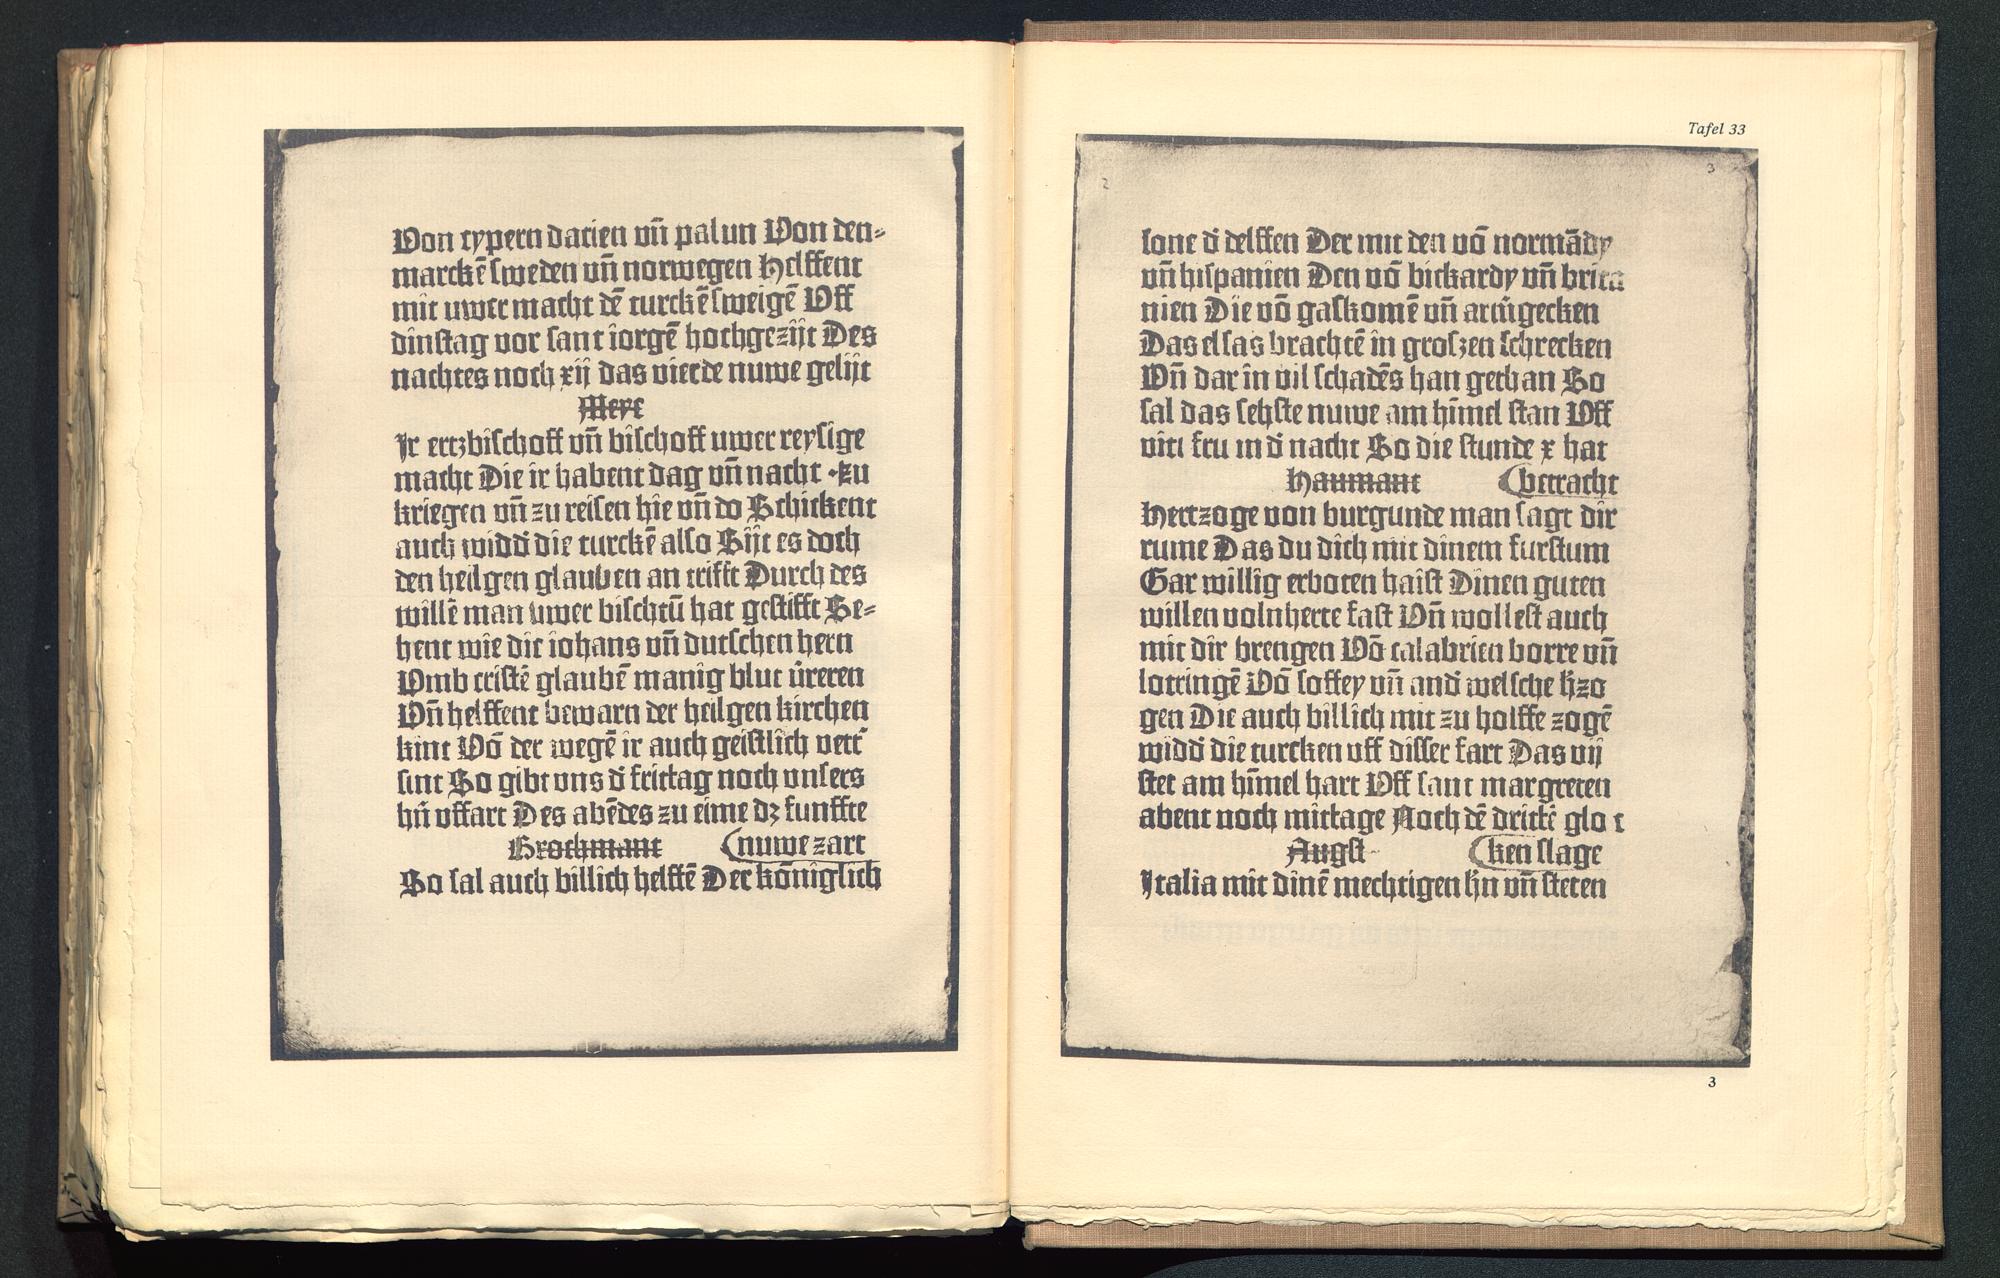 Von cypern dacien vn̄ palun Von den⸗
marckē sweden vn̄ norwegen Helffent
mit uwer macht dē turckē sweigē Vff
dinstag vor sant iorgē hochgezijt Des
nachtes noch xij das vierde nuwe gelijt
Meye
Ir ertzbischoff vn̄ bischoff uwer reysige
macht Die ir habent dag vn̄ nacht Zu
kriegen vn̄ zu reisen hie vn̄ do Schickent
auch widd̄ die turckē also Sijt es doch
den heilgen glauben an trifft Durch des
willē man uwer bischtū hat gestifft Se⸗
hent wie die iohans vn̄ dutschen hern
Vmb cristē glaubē manig blut ureren
Vn̄ helffent bewarn der heilgen kirchen
kint Vō der wegē ir auch geistlich vett̄
sint So gibt vns d̄ frietag noch vnsers
hn̄ vffart Des abēdes zu eime dz funffte
Brochmant (nuwe zart
So sal auch billich helffē Der kōniglich
Tafel 33
2
3
sone d̄ delffen Der mit den vō normādy
vn̄ hispanien Den vō bickardy vn̄ brita
nien Die vō gaskomē vn̄ armigecken
Das elsas brachtē in groszen schrecken
Vn̄ dar in vil schadēs han gethan So
sal das sehste nuwe am hīmel stan Vff
viti fru in d̄ nacht So die stunde x hat
Haumant (betracht
Hertzoge von burgunde man sagt dir
rume Das du dich mit dinem furstum
Gar willig erboten haist Dinen guten
willen volnherte fast Vn̄ wollest auch
mit dir brengen Vō calabrien borre vn̄
lotringē Vō soffey vn̄ and̄ welsche h̄zo
gen Die auch billich mit zu holffe zogē
widd̄ die turcken vff disser fart Das vij
stet am hīmel hart Vff sant margreten
abent noch mittage Noch dē drittē glo c
Augst (ken slage
Italia mit dinē mechtigen hn̄ vn̄ steten
3